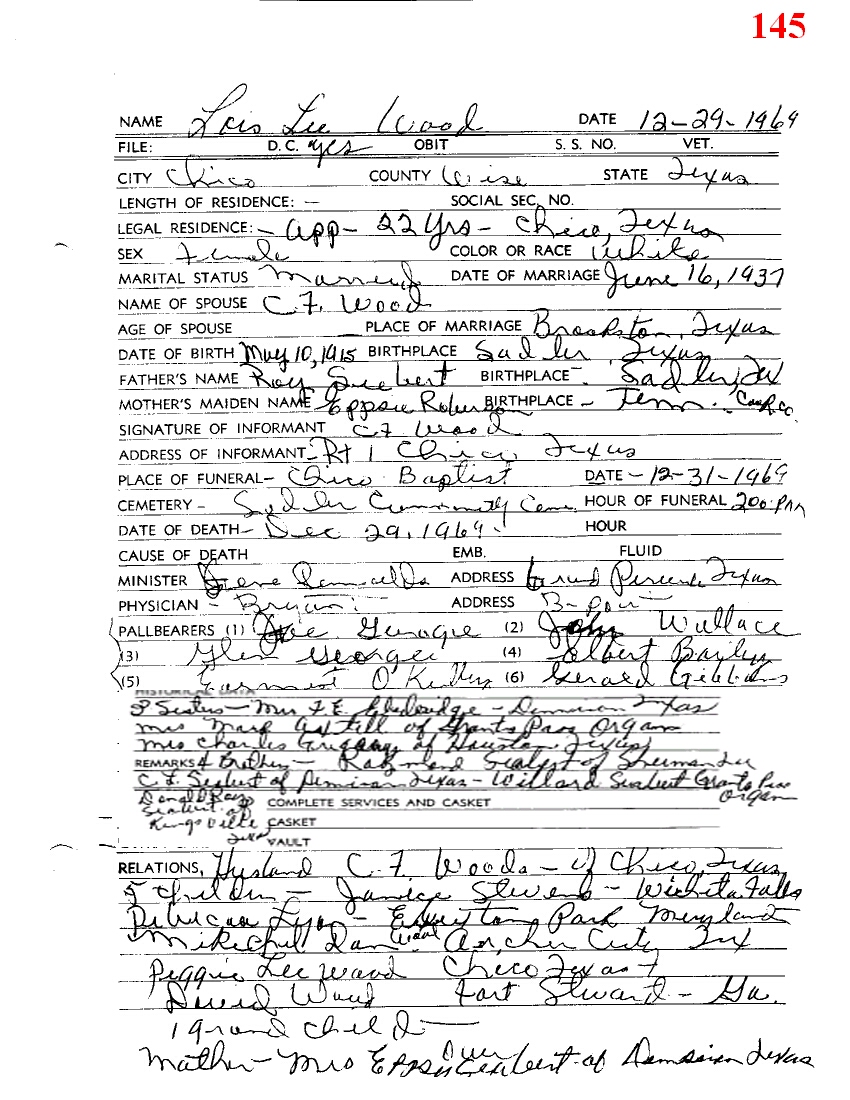 145
NAME Lois Lee Wood DATE 12-29-1969
FILE: D.C. yes OBIT S. S. NO. VET.
CITY Chico COUNTY Wise STATE Texas
LENGTH OF RESIDENCE: — SOCIAL SEC. NO.
LEGAL RESIDENCE: - app - 22 Yrs - Chico, Texas
SEX Female COLOR OR RACE White
MARITAL STATUS Married DATE OF MARRIAGE June 16, 1937
NAME OF SPOUSE C. F. Wood
AGE OF SPOUSE PLACE OF MARRIAGE Brookston, Texas
DATE OF BIRTH May 10, 1915 BIRTHPLACE Sadler, Texas
FATHER'S NAME Roy BIRTHPLACE - Sadler, Tex
MOTHER'S MAIDEN NAME Eppsie BIRTHPLACE - Tenn.
SIGNATURE OF INFORMANT C F Wood
ADDRESS OF INFORMANT - Rt 1 Chico, Texas
PLACE OF FUNERAL - Chico Baptist DATE - 12-31-1969
CEMETERY - Sadler Community Cem HOUR OF FUNERAL 200 PM
DATE OF DEATH - Dec 29, 1969 - HOUR
CAUSE OF DEATH EMB. FLUID
MINISTER Gene ADDRESS Grand Texas
PHYSICIAN - Bryan ADDRESS B-port
PALLBEARERS (1) (2) John Wallace
(3) Glen George (4) Elbert Bailey
(5) Earnest O'Kelley (6) Gerald Gibbons
HISTORICAL DATA
3 Sisters - Mrs F. E. - Denison Texas
Mrs of Grants Pass Organ
Mrs Charles Gregory of Houston Texas
REMARKS 4 Brothers - Raymond of Sherman
C. F. of Denison Texas - Willard Grants Pass
Organ
Donald Ray
of COMPLETE SERVICES AND CASKET
Kingsville CASKET
Texas VAULT
RELATIONS, Husband C. F. Woods - of Chico, Texas
5 Children - Janice Stevens - Wichita Falls
Lyon - Park Maryland
Dan Wood Archer City Tex
Peggie Lee Wood Chico Texas
David Wood Fort Steward - Ga.
1 grand child -
Mother - Mrs of Denison Texas